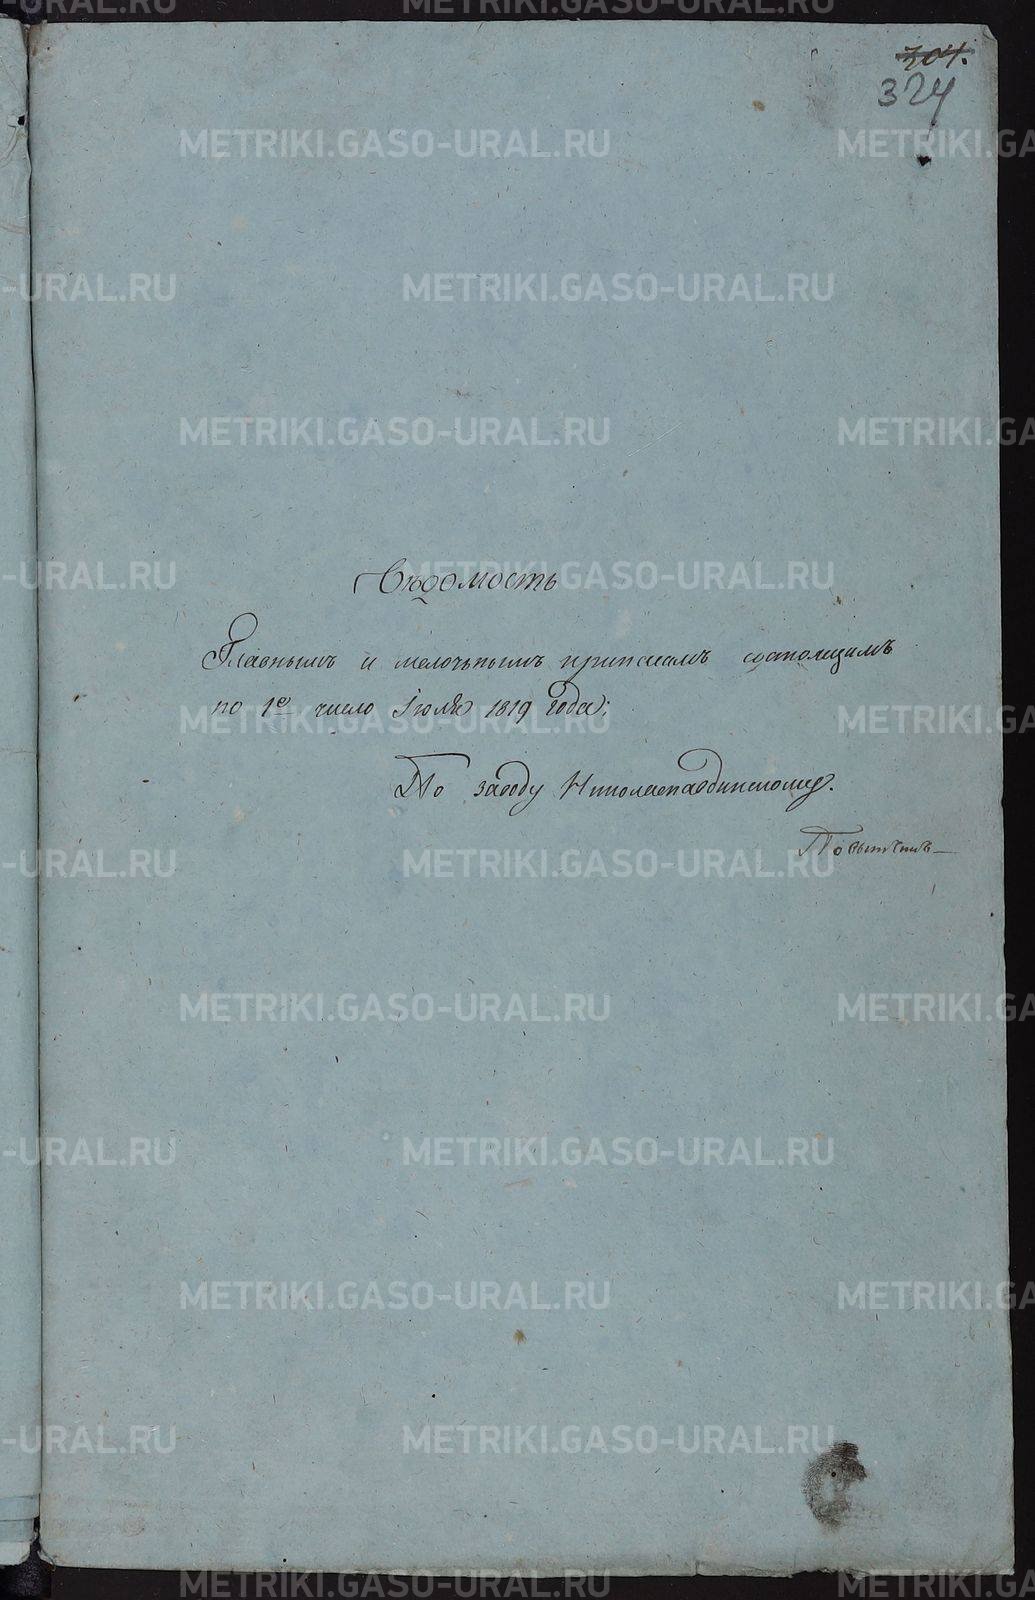 304.
324
Вѣдомость
Главнымъ и мелочьнымъ припасамъ состоящимъ
по 1е число Iюля 1819 года;
По заводу Николаепавдинскому.
METRIKI.GASO-URAL.RU